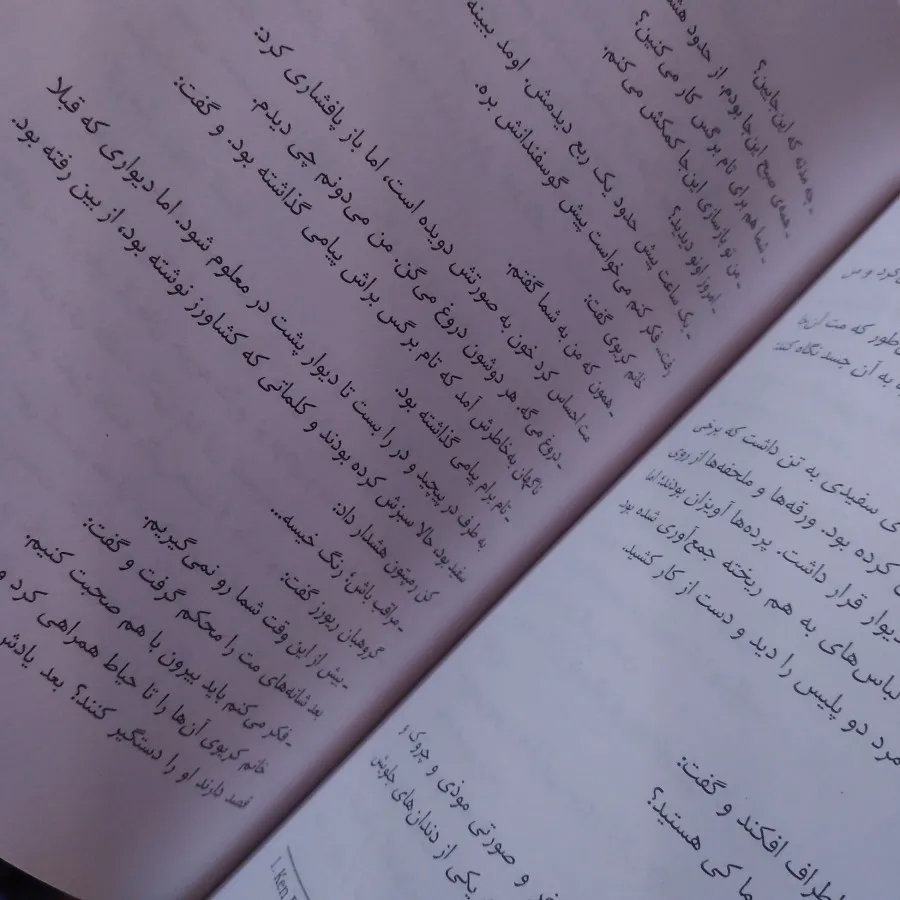 کرد و مت
طور که مت آن‌جا
به آن جسد نگاه کند
سفیدی به تن داشت که برخی
کرده بود. ورقه‌ها و ملحفه‌ها از روی
دیوار قرار داشت. پرده‌ها آویزان بودند؛ اما
لباس‌های به هم ریخته جمع‌آوری شده بود
مرد دو پلیس را دید و دست از کار کشید.
اطراف افکند و گفت:
کی هستید؟
و صورتی موذی و چروک و
یکی از دندان‌های جلویش
1. Ken
- چه مدته که این‌جایین؟
- همه‌ی صبح این‌جا بودم. از حدود
- شما هم برای تام برگس کار می‌کنین؟
- من تو بازسازی این‌جا کمکش می‌کنم.
- امروز اونو دیدید؟
- یک ساعت پیش حدود یک ربع دیدمش. اومد ببینه
رفت. فکر کنم می‌خواست پیش گوسفندانش بره.
خانم کربوی گفت:
- همون که من به شما گفتم.
مت احساس کرد خون به صورتش دویده است، اما باز پافشاری کرد:
- دروغ می‌گه. هر دوشون دروغ می‌گن. من می‌دونم چی دیدم.
ناگهان به‌خاطرش آمد که تام برگس براش پیامی گذاشته بود. و گفت:
- تام برام پیامی گذاشته بود.
به طرف در پیچید و در را بست تا دیوار پشت در معلوم شود. اما دیواری که قبلا
سفید بود حالا سبزش کرده بودند و کلماتی که کشاورز نوشته بود، از بین رفته بود.
کن رمپتون هشدار داد:
- مراقب باش؛ رنگ خیسه...
گروهبان ریورز گفت:
- بیش از این وقت شما رو نمی‌گیریم.
بعد شانه‌های مت را محکم گرفت و گفت:
- فکر می‌کنم باید بیرون با هم صحبت کنیم.
خانم کربوی آن‌ها را تا حیاط همراهی کرد و
قصد دارند او را دستگیر کنند؟ بعد یادش